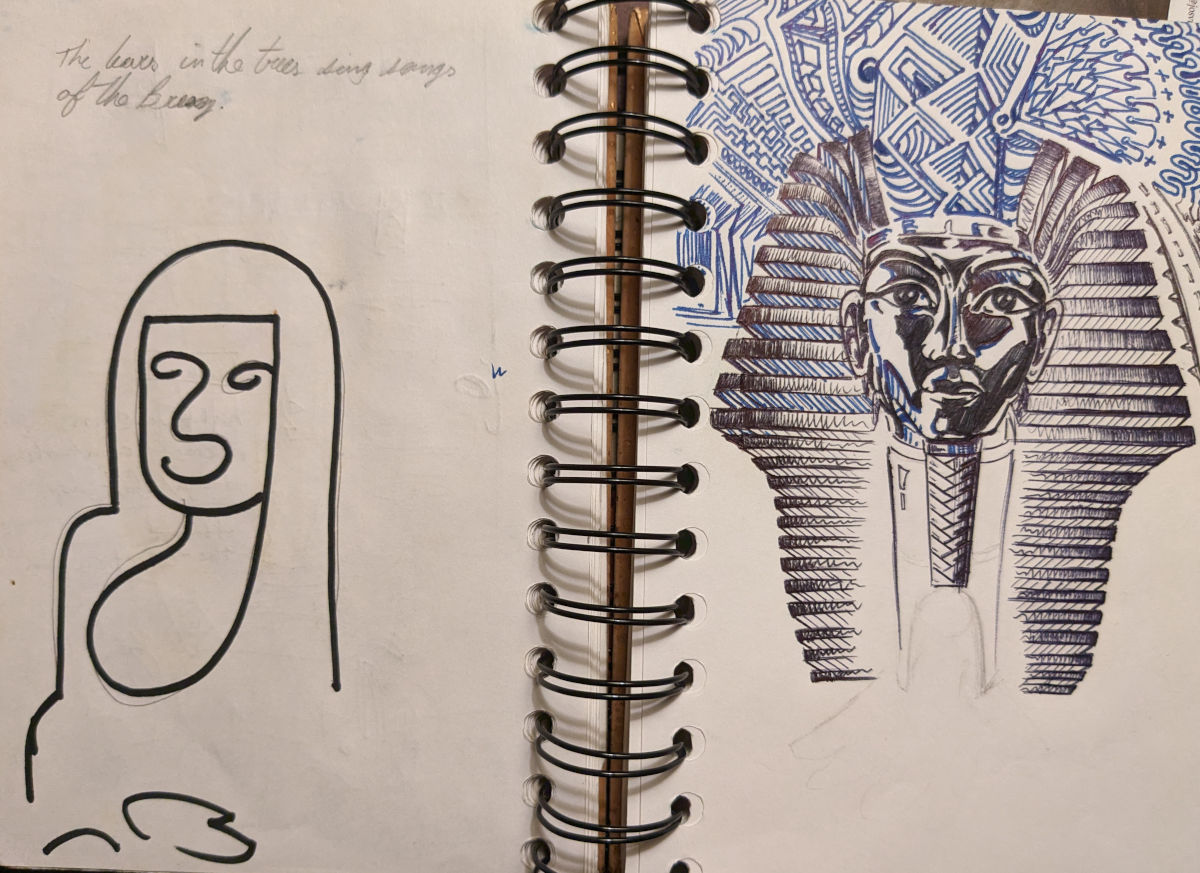 The leaves in the trees sing songs
of the Breeze.